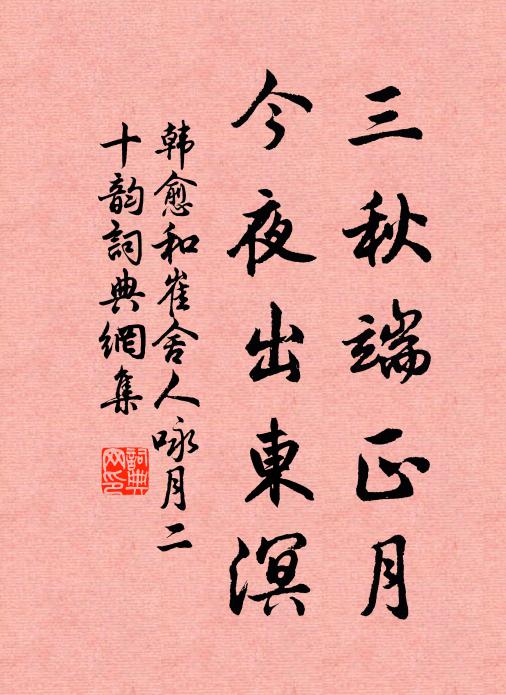 三秋端正月
今夜出東溟
韩愈和崔舍人咏月二
十韵詞典網集
詞典
网印